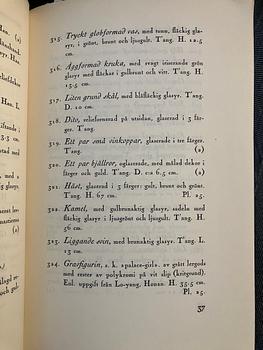 315. Tryckt globformad vas, med tunn, fläckig glasyr, i grönt, brunt och ljusgult. T'ang. H. 12.5 cm.
316. Äggformad kruka, med svagt iriserande grön glasyr med fläckar i gulbrunt och vitt. T'ang. H. 15.5 cm.
317. Liten grund skål, med blåfläckig glasyr. T'ang. D. 10 cm.
318. Dito, reliefornerad på utsidan, glaserad i 3 färger. T'ang.
319. Ett par små vinkoppar, glaserade i tre färger. T'ang. (2)
320. Ett par bjällror, oglaserade, med målad dekor i färger och guld. T'ang. D: c:a 6.5 cm. (2)
321. Häst, glaserad i 3 färger: gult, brunt och grönt. T'ang. H. 67 cm. Pl. 25.
322. Kamel, med gulbrunaktig glasyr, sadeln med fläckig glasyr i ljusgrönt och ljusgult. T'ang. H. 56 cm.
323. Liggande svin, med brunaktig glasyr. T'ang. L. 13 cm.
324. Gravfigurin, s. k. »palace-girl», av grått lergods med rester av polykromi på vit slip (kritgrund). Enl. uppgift från Lo-yang, Honan. H. 35.5 cm. Pl. 25.
37